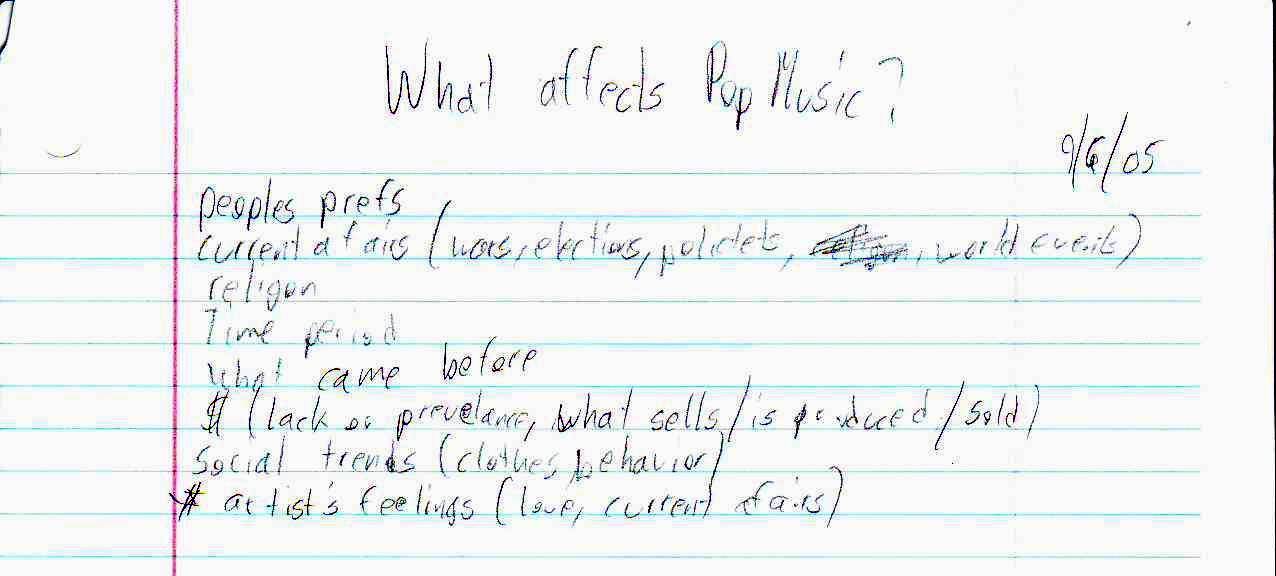 What affects Pop Music?
9/6/05
peoples prefs
current afairs (wars, elections, , world events)
religon
Time period
what came before
$ (lack or prevelance, what sells/is produced/sold)
social trends (clothes, behavior)
* artist's feelings (love, current afairs)